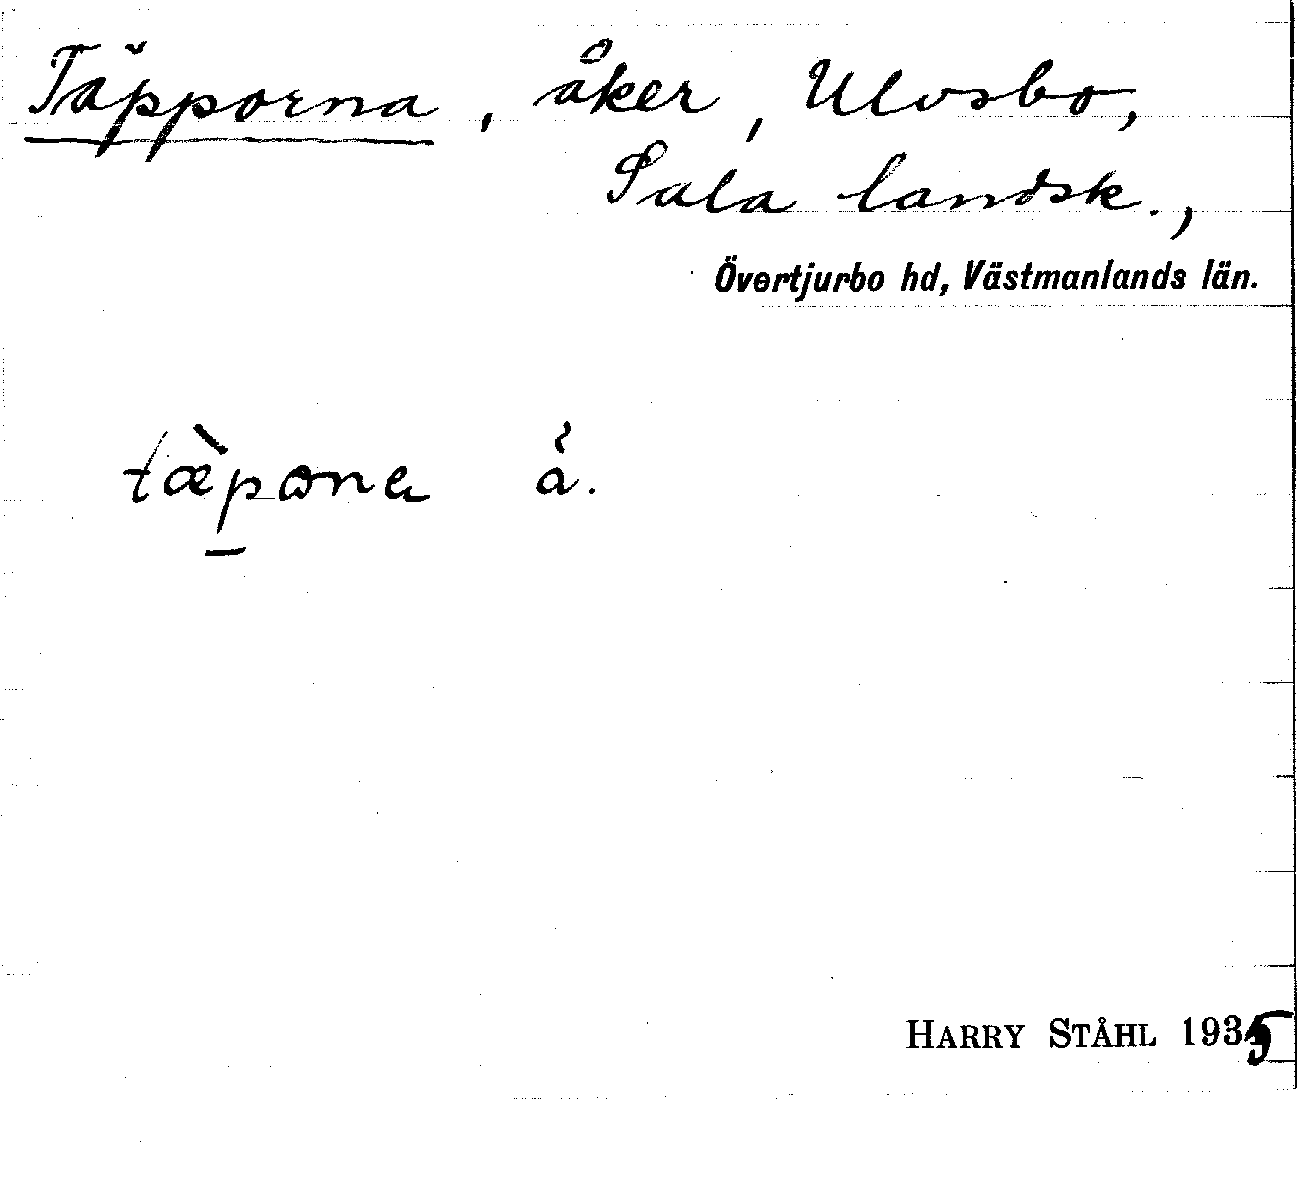 Täpporna, åker, Ulvsbo,
Sala landsk.,
Övertjurbo hd, Västmanlands län.
tæ̀p̠ɷna å.
HARRY STÅHL 1935